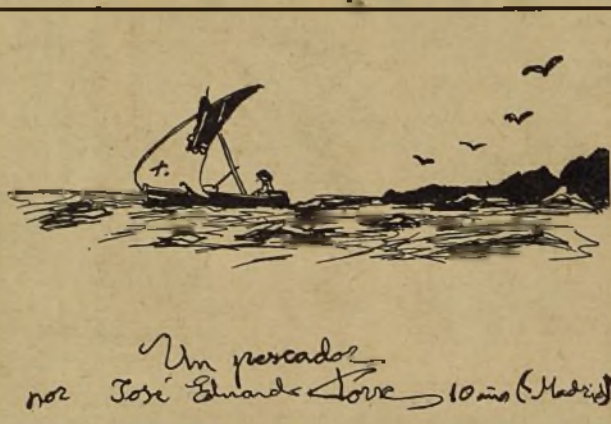 Un pescador
por José Eduardo Torre 10 años (Madrid)